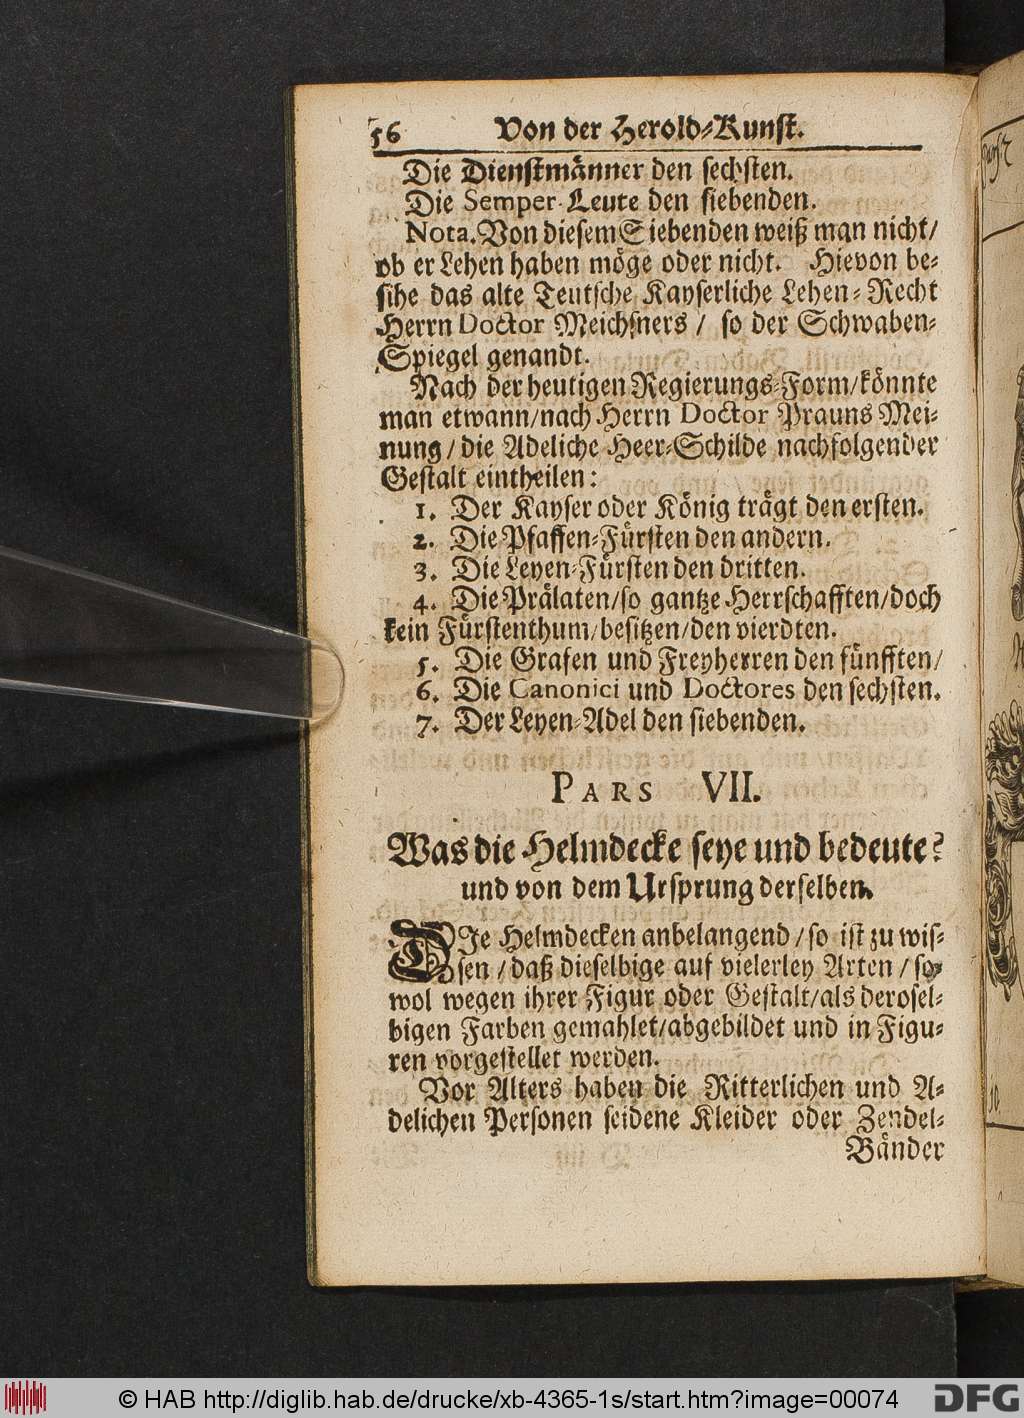 56 Von der Herold-Kunst.
Die Dienstmänner den sechsten.
Die Semper-Leute den siebenden.
Nota. Von diesem Siebenden weiß man nicht/
ob er Lehen haben möge oder nicht. Hievon be-
sihe das alte Teutsche Kayserliche Lehen-Recht
Herrn Doctor Meichsners / so der Schwaben-
Spiegel genandt.
Nach der heutigen Regierungs-Form/könnte
man etwann/nach Herrn Doctor Prauns Mei-
nung / die Adeliche Heer-Schilde nachfolgender
Gestalt eintheilen:
1. Der Kayser oder König trägt den ersten.
2. Die Pfaffen-Fürsten den andern.
3. Die Leyen-Fürsten den dritten.
4. Die Prälaten/so gantze Herrschafften/doch
kein Fürstenthum/besitzen/den vierdten.
5. Die Grafen und Freyherren den fünfften/
6. Die Canonici und Doctores den sechsten.
7. Der Leyen-Adel den siebenden.
PARS VII.
Was die Helmdecke seye und bedeute?
und von dem Ursprung derselben.
DIe Helmdecken anbelangend / so ist zu wis-
sen / daß dieselbige auf vielerley Arten / so-
wol wegen ihrer Figur oder Gestalt/als derosel-
bigen Farben gemahlet/abgebildet und in Figu-
ren vorgestellet werden.
Vor Alters haben die Ritterlichen und A-
delichen Personen seidene Kleider oder Zendel-
Bänder
© HAB http://diglib.hab.de/drucke/xb-4365-1s/start.htm?image=00074
DFG